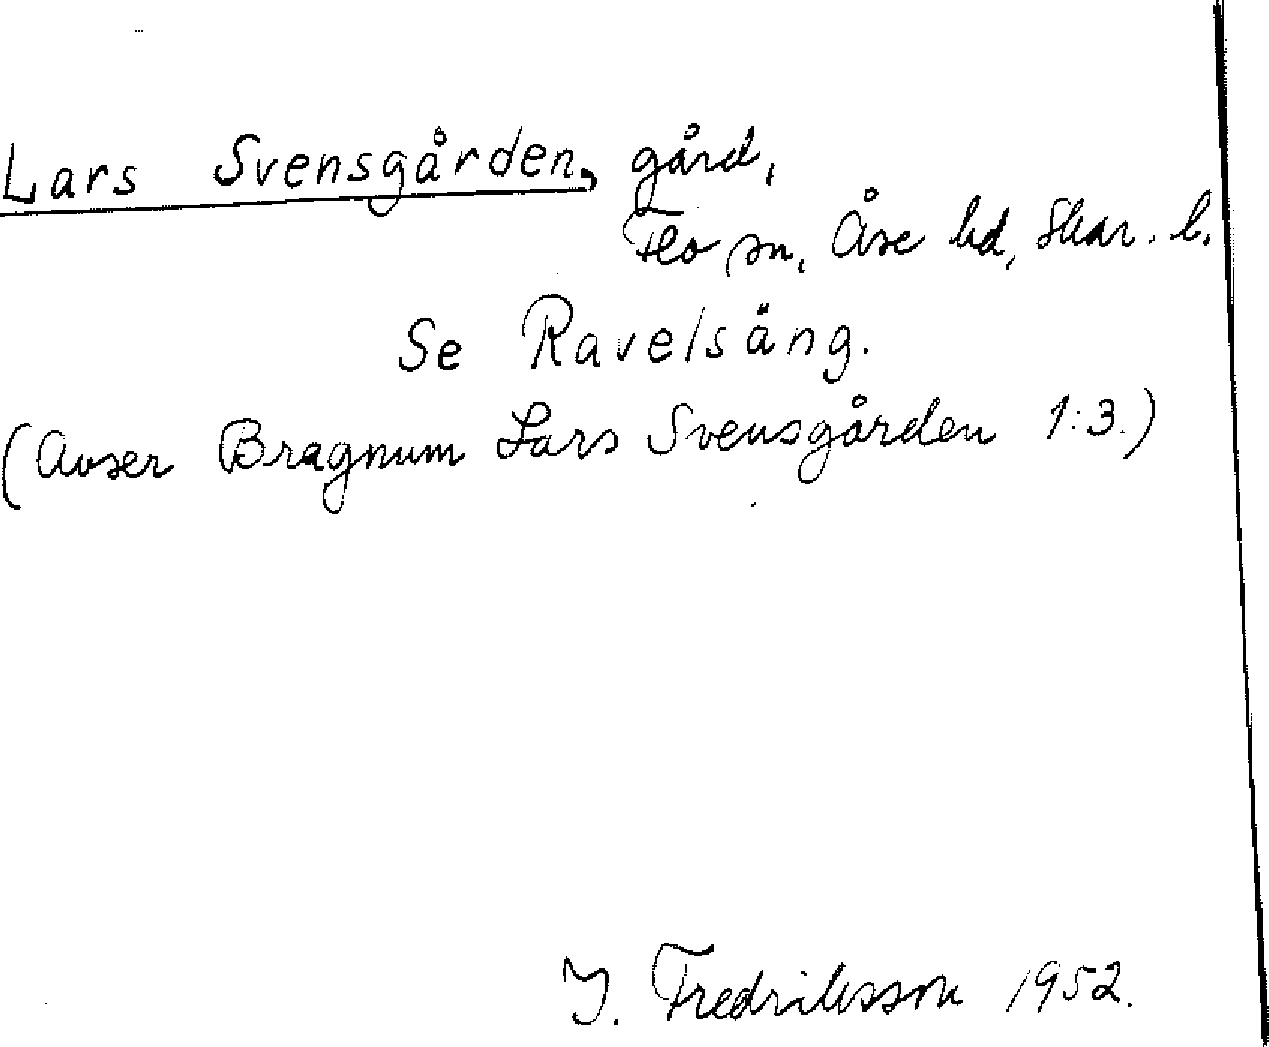 Lars Svensgården, gård,
Flo sn, Åse hd, Skar. l.
Se Ravelsäng.
(Avser Bragnum Lars Svensgården 1:3.)
I. Fredriksson 1952.